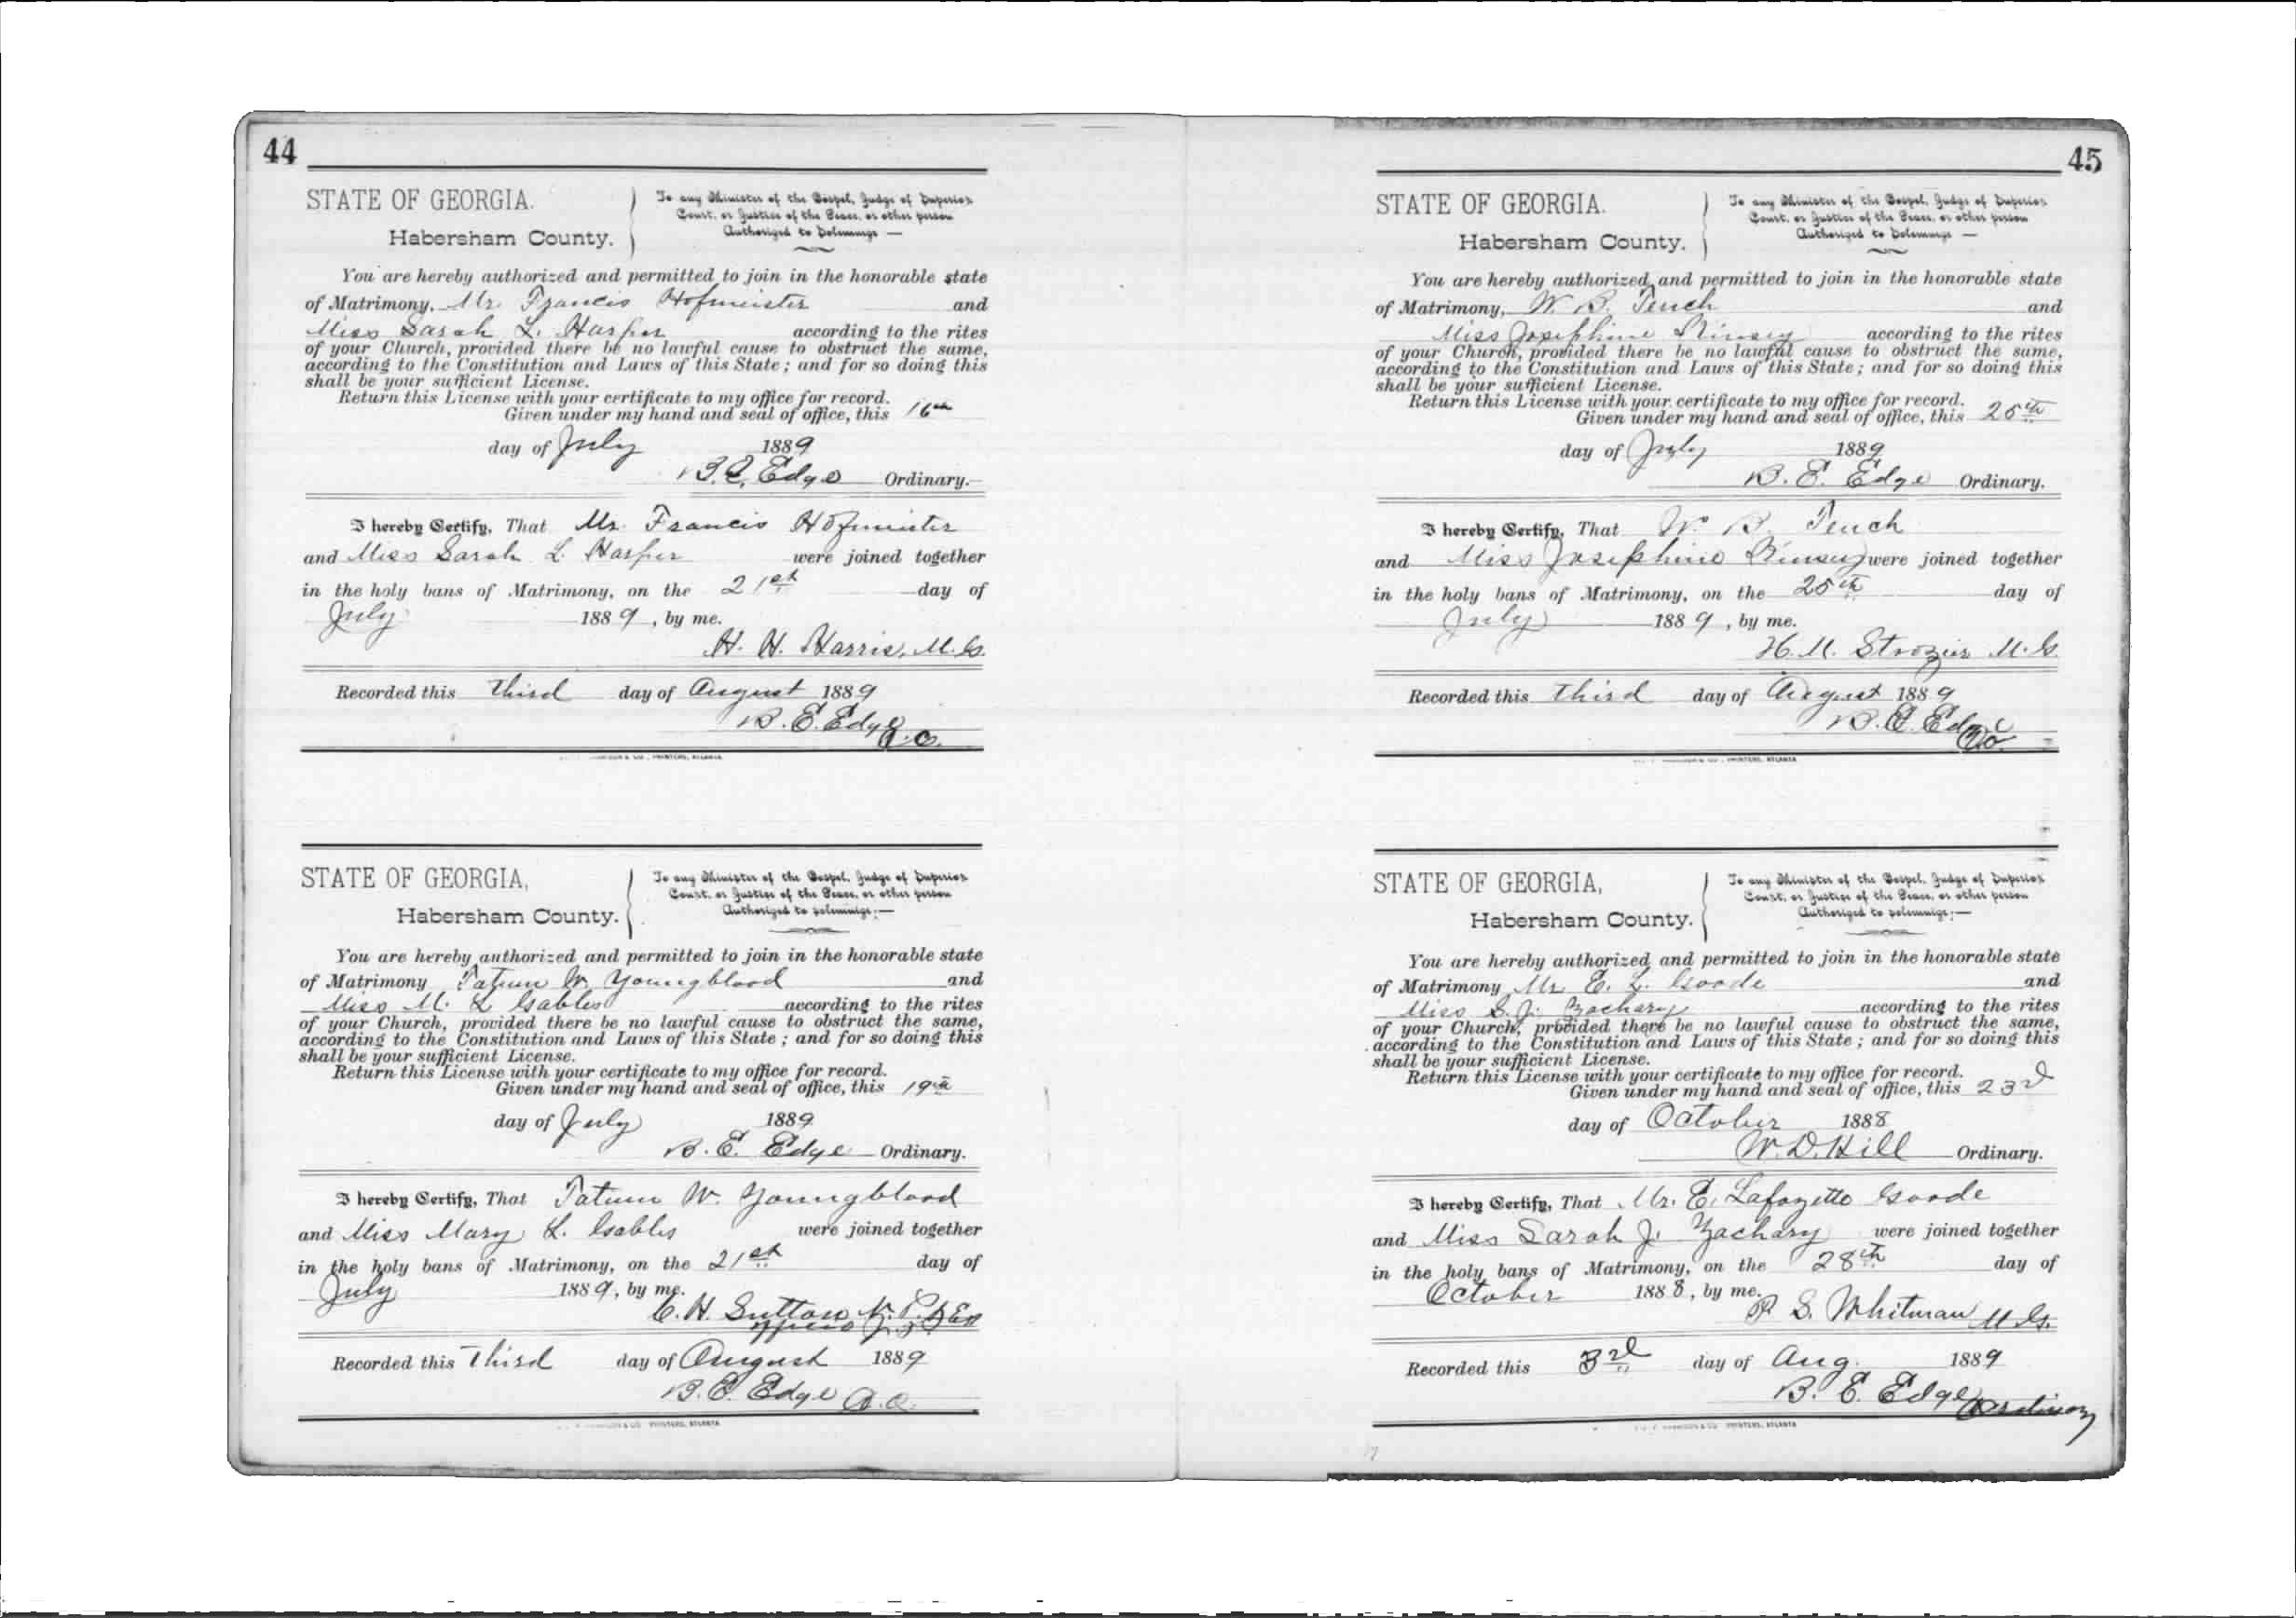 44
STATE OF GEORGIA.
Habersham County.
To any Minister of the Gospel, Judge of Superior
Court, or Justice of the Peace, or other person
Authorized to Solemnize —
You are hereby authorized and permitted to join in the honorable state
of Matrimony, Mr. Francis Hofmeister and
Miss Sarah L. Harper according to the rites
of your Church, provided there be no lawful cause to obstruct the same,
according to the Constitution and Laws of this State; and for so doing this
shall be your sufficient License.
Return this License with your certificate to my office for record.
Given under my hand and seal of office, this 16th
day of July 1889
B. E. Edge Ordinary.
I hereby Certify, That Mr. Francis Hofmeister
and Miss Sarah L. Harper were joined together
in the holy bans of Matrimony, on the 21st day of
July 1889, by me.
H. H. Harris, M.G.
Recorded this third day of August 1889
B. E. Edge
STATE OF GEORGIA,
Habersham County.
To any Minister of the Gospel, Judge of Superior
Court, or Justice of the Peace, or other person
Authorized to solemnize;—
You are hereby authorized and permitted to join in the honorable state
of Matrimony Tatum W. Youngblood and
Miss M. L Gables according to the rites
of your Church, provided there be no lawful cause to obstruct the same,
according to the Constitution and Laws of this State; and for so doing this
shall be your sufficient License.
Return this License with your certificate to my office for record.
Given under my hand and seal of office, this 19th
day of July 1889
B. E. Edge Ordinary.
I hereby Certify, That Tatum W. Youngblood
and Miss Mary L. Gables were joined together
in the holy bans of Matrimony, on the 21st day of
July 1889, by me.
C. H. Sutton N. P. & Ex
officio J. P.
Recorded this Third day of August 1889
B. E. Edge
45
STATE OF GEORGIA.
Habersham County.
To any Minister of the Gospel, Judge of Superior
Court, or Justice of the Peace, or other person
Authorized to Solemnize —
You are hereby authorized and permitted to join in the honorable state
of Matrimony, W. B. Tench and
Miss Josephine Kinsey according to the rites
of your Church, provided there be no lawful cause to obstruct the same,
according to the Constitution and Laws of this State; and for so doing this
shall be your sufficient License.
Return this License with your certificate to my office for record.
Given under my hand and seal of office, this 25th
day of July 1889
B. E. Edge Ordinary.
I hereby Certify, That W. B. Tench
and Miss Josephine Kinsey were joined together
in the holy bans of Matrimony, on the 25th day of
July 1889, by me.
H. M. Strozier M.G.
Recorded this third day of August 1889
B. E. Edge
STATE OF GEORGIA,
Habersham County.
To any Minister of the Gospel, Judge of Superior
Court, or Justice of the Peace, or other person
Authorized to solemnize;—
You are hereby authorized and permitted to join in the honorable state
of Matrimony Mr E. L. Goode and
Miss S. J. Zachary according to the rites
of your Church, provided there be no lawful cause to obstruct the same,
according to the Constitution and Laws of this State; and for so doing this
shall be your sufficient License.
Return this License with your certificate to my office for record.
Given under my hand and seal of office, this 23d
day of October 1888
W. D. Hill Ordinary.
I hereby Certify, That Mr. E. Lafayette Goode
and Miss Sarah J. Zachary were joined together
in the holy bans of Matrimony, on the 28th day of
October 1888, by me.
P. S. Whitman M.G.
Recorded this 3rd day of Aug. 1889
B. E. Edge Ordinary